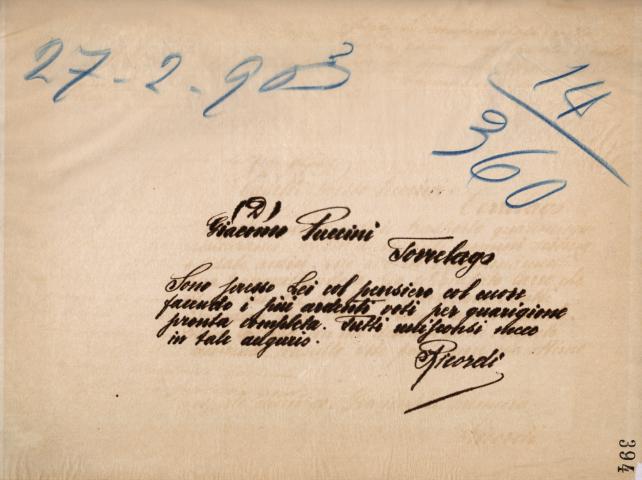 27-2-903
14/360
(D)
Giacomo Puccini
Torrelago
Sono presso Lei col pensiero col cuore
facendo i più ardenti voti per guarigione
pronta completa. Tutti unisconsi meco
in tale augurio.
Ricordi
394